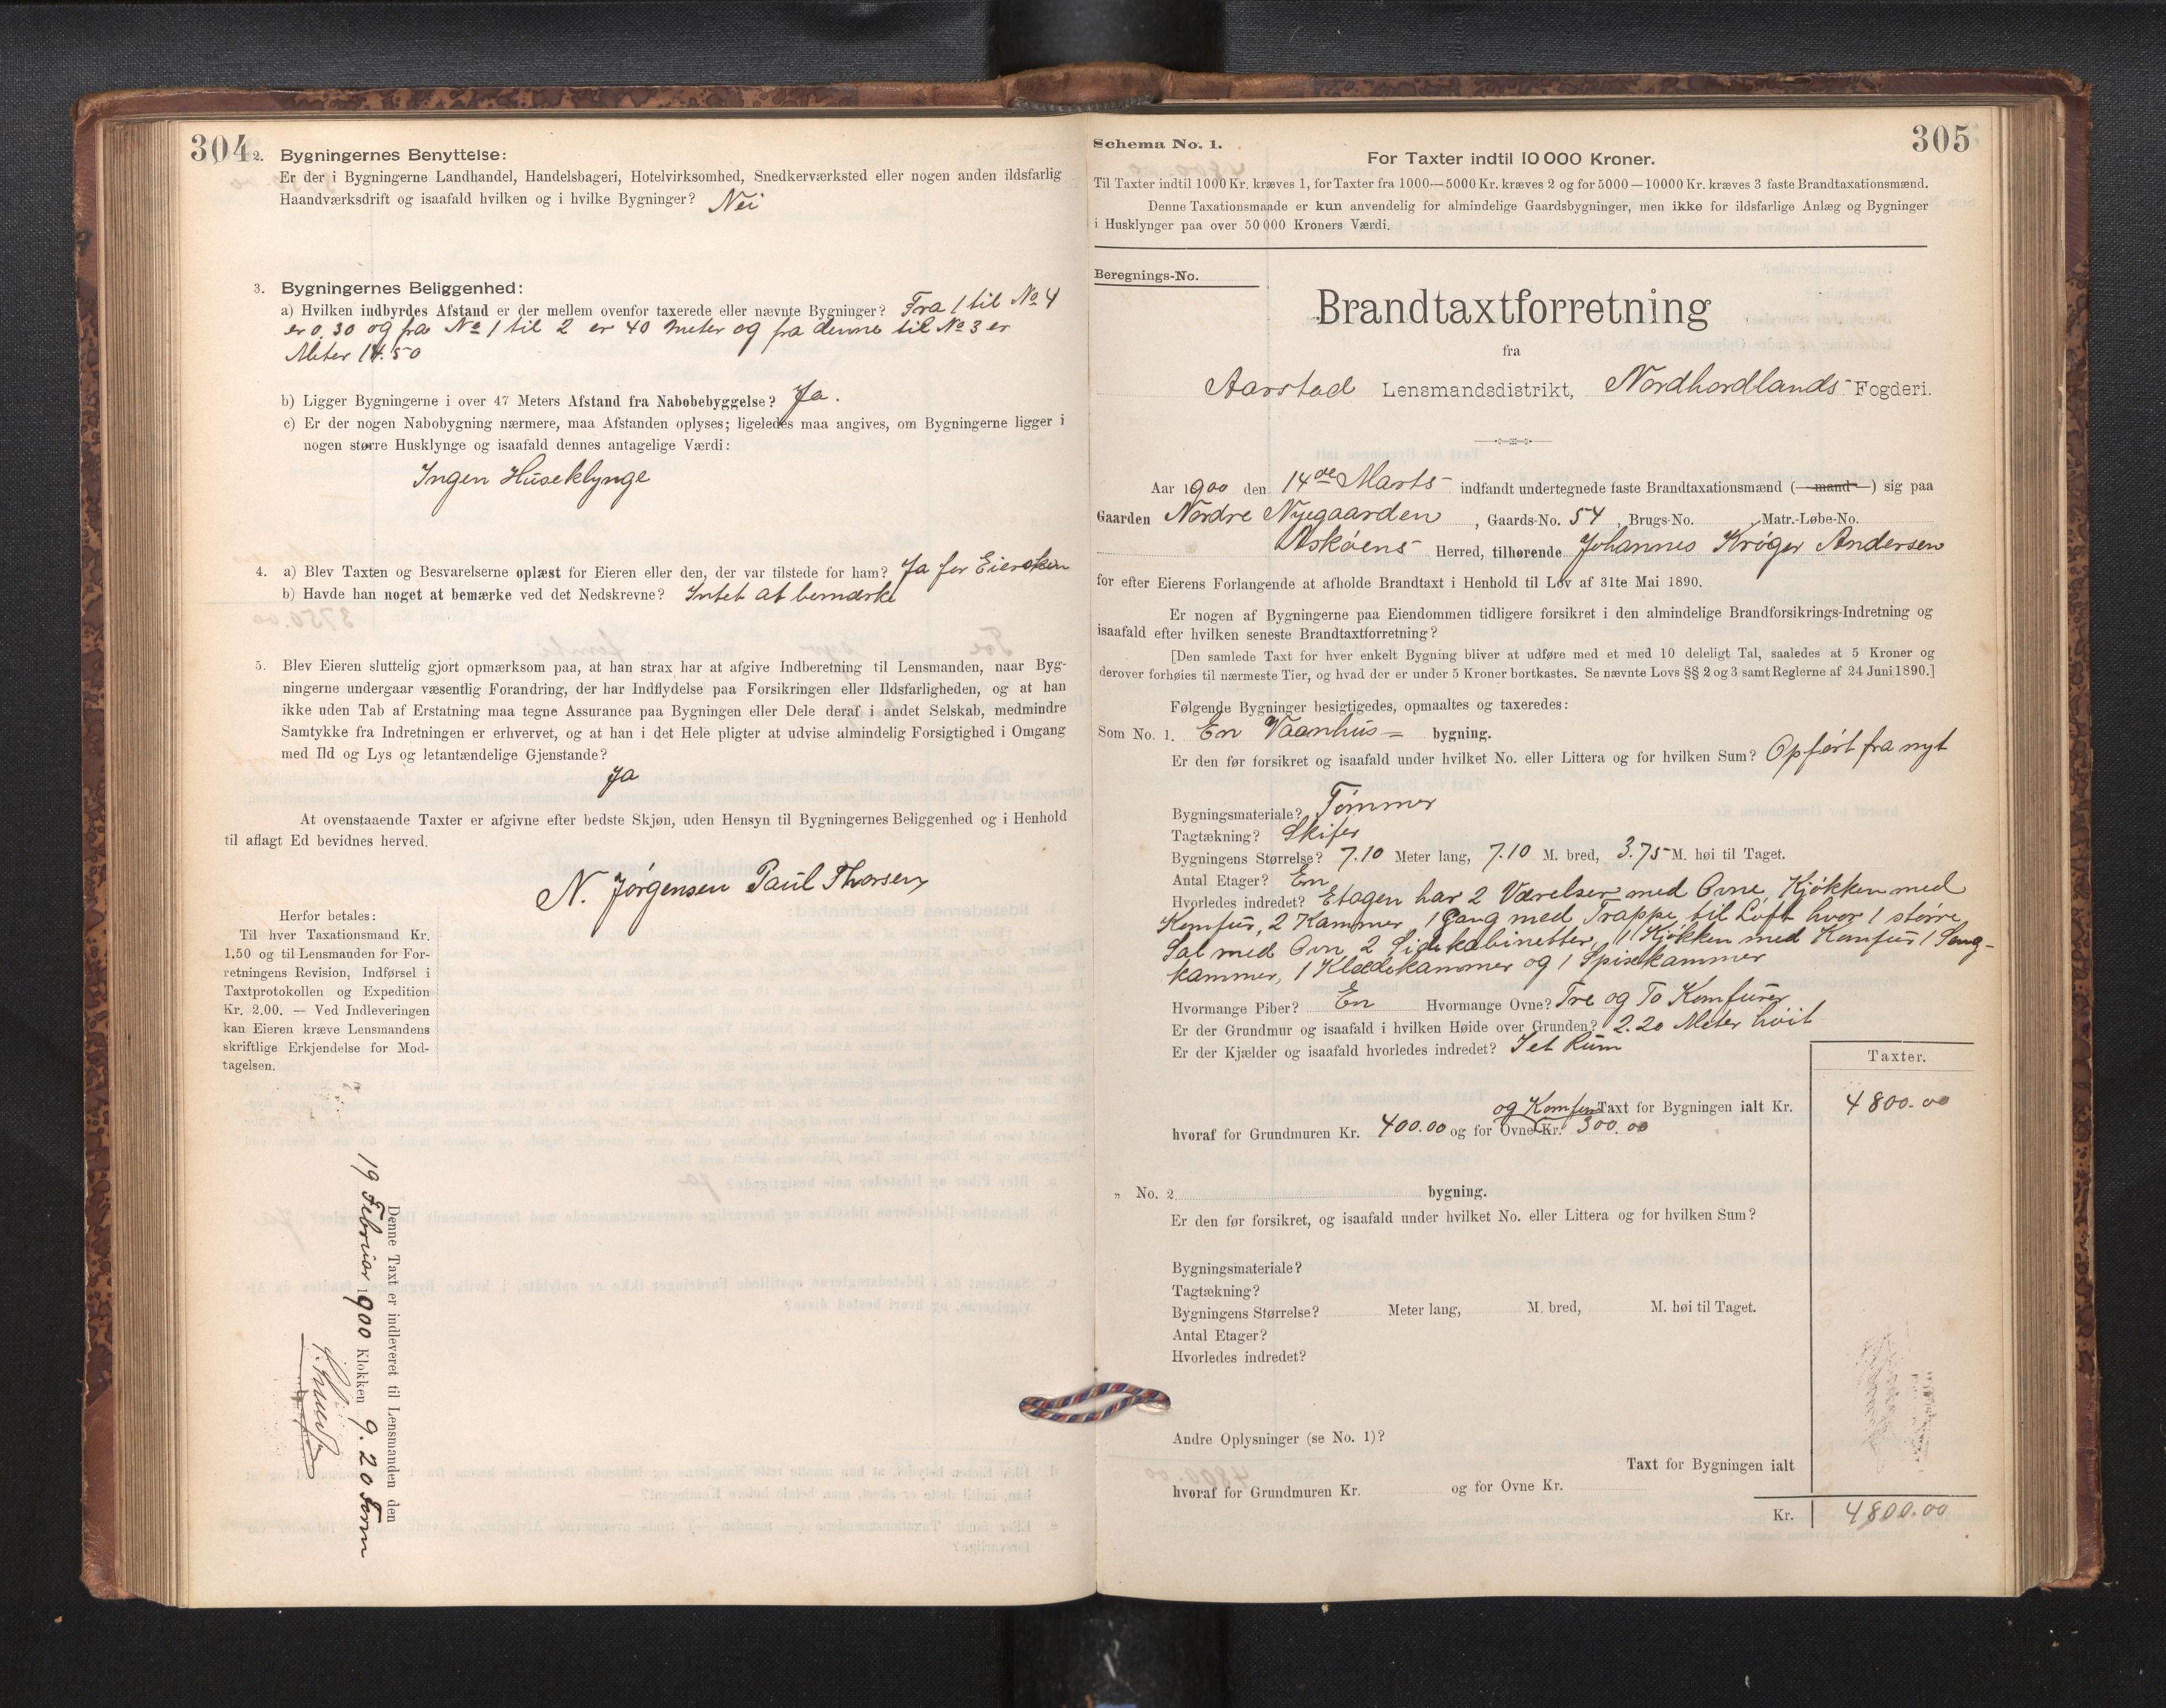 304
2. Bygningernes Benyttelse:
Er der i Bygningerne Landhandel, Handelsbageri, Hotelvirksomhed, Snedkerværksted eller nogen anden ildsfarlig
Haandværksdrift og isaafald hvilken og i hvilke Bygninger? Nei
3. Bygningernes Beliggenhed:
a) Hvilken indbyrdes Afstand er der mellem ovenfor taxerede eller nævnte Bygninger? Fra 1 til No 4
er 0,30 og fra No 1 til 2 er 40 Meter og fra denne til No 3 er
Meter 14.50
b) Ligger Bygningerne i over 47 Meters Afstand fra Nabobebyggelse? Ja.
c) Er der nogen Nabobygning nærmere, maa Afstanden oplyses; ligeledes maa angives, om Bygningerne ligger i
nogen større Husklynge og isaafald dennes antagelige Værdi:
Ingen Huseklynge
4. a) Blev Taxten og Besvarelserne oplæst for Eieren eller den, der var tilstede for ham? Ja for Eiersken
b) Havde han noget at bemærke ved det Nedskrevne? Intet at bemærke
5. Blev Eieren sluttelig gjort opmærksom paa, at han strax har at afgive Indberetning til Lensmanden, naar Byg-
ningerne undergaar væsentlig Forandring, der har Indflydelse paa Forsikringen eller Ildsfarligheden, og at han
ikke uden Tab af Erstatning maa tegne Assurance paa Bygningen eller Dele deraf i andet Selskab, medmindre
Samtykke fra Indretningen er erhvervet, og at han i det Hele pligter at udvise almindelig Forsigtighed i Omgang
med Ild og Lys og letantændelige Gjenstande?
Ja
At ovenstaaende Taxter er afgivne efter bedste Skjøn, uden Hensyn til Bygningernes Beliggenhed og i Henhold
til aflagt Ed bevidnes herved.
N. Jørgensen Paul Thorsen
Herfor betales:
Til hver Taxationsmand Kr.
1.50 og til Lensmanden for For-
retningens Revision, Indførsel i
Taxtprotokollen og Expedition
Kr. 2.00. — Ved Indleveringen
kan Eieren kræve Lensmandens
skriftlige Erkjendelse for Mod-
tagelsen.
Denne Taxt er indleveret til Lensmanden den
19 Februar 1900 Klokken 9.20 Form
305
Schema No. 1.
For Taxter indtil 10 000 Kroner.
Til Taxter indtil 1000 Kr. kræves 1, for Taxter fra 1000—5000 Kr. kræves 2 og for 5000—10000 Kr. kræves 3 faste Brandtaxationsmænd.
Denne Taxationsmaade er kun anvendelig for almindelige Gaardsbygninger, men ikke for ildsfarlige Anlæg og Bygninger
i Husklynger paa over 50 000 Kroners Værdi.
Beregnings-No.
Brandtaxtforretning
fra
Aarstad Lensmandsdistrikt, Nordhordlands Fogderi.
Aar 1900 den 14de Marts indfandt undertegnede faste Brandtaxationsmænd (—mand—) sig paa
Gaarden Nordre Nyegaarden, Gaards-No. 54, Brugs-No. , Matr.-Løbe-No.
Askøens Herred, tilhørende Johannes Krøger Andersen
for efter Eierens Forlangende at afholde Brandtaxt i Henhold til Lov af 31te Mai 1890.
Er nogen af Bygningerne paa Eiendommen tidligere forsikret i den almindelige Brandforsikrings-Indretning og
isaafald efter hvilken seneste Brandtaxtforretning?
[Den samlede Taxt for hver enkelt Bygning bliver at udføre med et med 10 deleligt Tal, saaledes at 5 Kroner og
derover forhøies til nærmeste Tier, og hvad der er under 5 Kroner bortkastes. Se nævnte Lovs §§ 2 og 3 samt Reglerne af 24 Juni 1890.]
Følgende Bygninger besigtigedes, opmaaltes og taxeredes:
Som No. 1. En Vaanhus= bygning.
Er den før forsikret og isaafald under hvilket No. eller Littera og for hvilken Sum? Opført fra nyt
Bygningsmateriale? Tømmer
Tagtækning? Skifer
Bygningens Størrelse? 7.10 Meter lang, 7.10 M. bred, 3.75 M. høi til Taget.
Antal Etager? En
Hvorledes indredet? Etagen har 2 Værelser med Ovne, Kjøkken med
Komfur, 2 Kammer, 1 Gang med Trappe til Loft hvor 1 større
Sal med Ovn 2 Sidekabinetter, 1 Kjøkken med Komfur 1 Seng-
kammer, 1 Klædekammer og 1 Spisekammer
Hvormange Piber? En Hvormange Ovne? Tre og To Komfurer
Er der Grundmur og isaafald i hvilken Høide over Grunden? 2.20 Meter høit
Er der Kjælder og isaafald hvorledes indredet? I et Rum
Taxter.
og Komfur Taxt for Bygningen ialt Kr. 4800.00
hvoraf for Grundmuren Kr. 400.00 og for Ovne Kr. 300.00
„ No. 2 bygning.
Er den før forsikret, og isaafald under hvilket No. eller Littera og for hvilken Sum?
Bygningsmateriale?
Tagtækning?
Bygningens Størrelse? Meter lang, M. bred, M. høi til Taget.
Antal Etager?
Hvorledes indredet?
Andre Oplysninger (se No. 1)?
Taxt for Bygningen ialt
hvoraf for Grundmuren Kr. og for Ovne Kr.
Kr. 4800.00